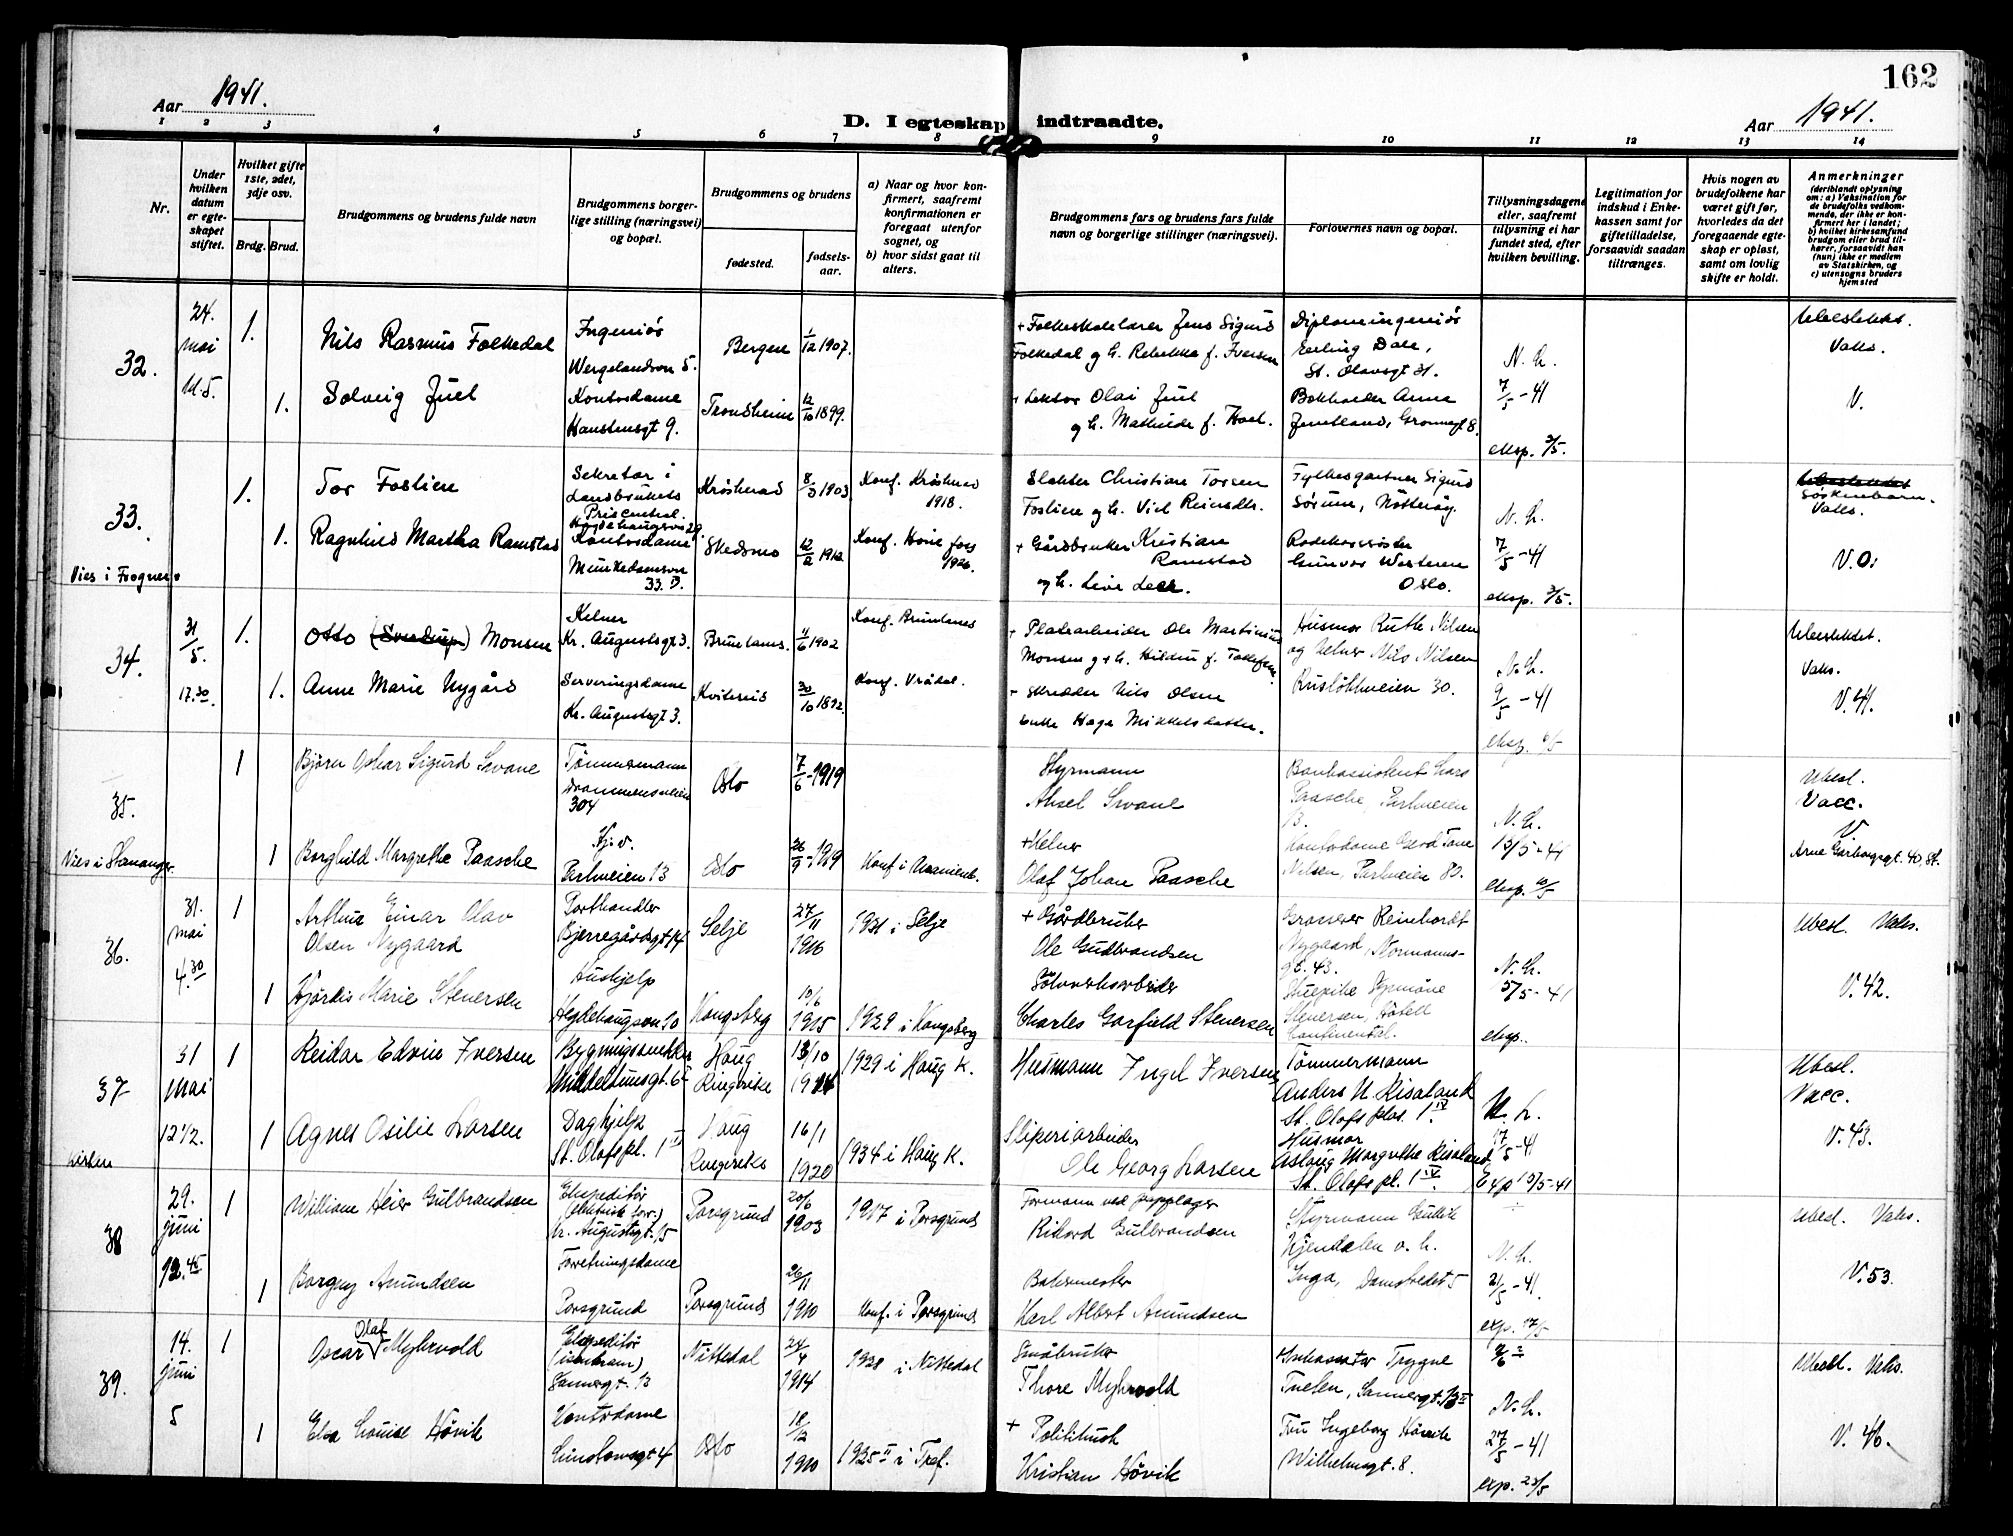 162
Aar 1941.
D. I egteskap indtraadte.
Aar 1941.
1 2 3 4 5 6 7 8 9 10 11 12 13 14
Nr.
Under hvilken datum er egteskapet stiftet.
Hvilket gifte 1ste, 2det, 3dje osv.
Brdg. Brud.
Brudgommens og brudens fulde navn
Brudgommens borgerlige stilling (næringsvei) og bopæl.
Brudgommens og brudens
fødested.
fødselsaar.
a) Naar og hvor konfirmert, saafremt konfirmationen er foregaat utenfor sognet, og
b) hvor sidst gaat til alters.
Brudgommens fars og brudens fars fulde navn og borgerlige stillinger (næringsvei).
Forlovernes navn og bopæl.
Tillysningsdagene eller, saafremt tillysning ei har fundet sted, efter hvilken bevilling.
Legitimation for indskud i Enkekassen samt for giftetilladelse, forsaavidt saadan tiltrænges.
Hvis nogen av brudefolkene har været gift før, hvorledes da det foregaaende egteskap er opløst, samt om lovlig skifte er holdt.
Anmerkninger
(deriblandt oplysning om: a) Vaksination for de brudefolks vedkommende, der ikke er konfirmert her i landet; b) hvilket kirkesamfund brudgom eller brud tilhører, forsaavidt han (hun) ikke er medlem av Statskirken, og c) utensogns bruders hjemsted
32.
24. mai
1.
Nils Rasmus Folkedal
Ingeniør
Wergelandsvn 5.
Bergen
1/12 1907.
+ Folkeskolelærer Jens Sigurd
Folkedal og h. Rebekka f. Iversen
Diplomingeniør
Erling Dale,
St. Olavsgt 31.
N. h.
7/5 - 41
eksp. 2/5.
Ubeslektet.
Vaks.
V.
1.
Solveig Juel
Kontordame
Hanstensgt 9.
Trondheim
12/10 1899.
+ Lektor Olai Juel
og h. Mathilde f. Hoel.
Bokholder Anna
Jemtland, Grønnegt 8.
33.
Vies i Frogner
1.
Tor Foslien
Sekretær i
Landbrukets
Priscentral.
Krøsherad
8/3 1903
Konf. Krøsherad
1918.
Slakter Christian Torsen
Foslien og h.
Fylkesgartner Sigurd
Sørum, Nøtterøy.
N. h.
7/5 - 41
eksp. 3/5.
Søskenbarn.
Vaks.
V. O.
1.
Ragnhild Martha Ramstad
Kontordame
Munkedamsvn
33. D.
Skedsmo
12/2 1912
+ Gårdbruker Kristian
Ramstad
og h. Live Leer.
Rødekorssøster
Gunvor Westeren
Oslo.
34.
31/5.
17.30
1.
Otto (Sverdrup) Monsen
Kelner
Kr. Augustsgt 3.
Brunlanes.
11/6 1902
Konf. Brunlanes
+ Platearbeider Ole Martinius
Monsen og h. Hildur f. Tollefsen.
Husmor Ruth Nilsen
og kelner Nils Nilsen
30.
N. h.
9/5 - 41
eksp.
Ubeslektet.
Vaks.
V. 41.
1.
Anne Marie Nygård
Serveringsdame
Kr. Augustsgt 3.
Kviteseid
30/10 1892.
Konf. Vrådal.
+ Skredder Nils Olsen
enke Hage Mikkelsdatter.
35.
Vies i Stavanger
1
Bjørn Oskar Sigurd Svane
Tømmermann
Drammensveien
304
Oslo
7/6 - 1919
Styrmann
Aksel Svane
Bankassistent Lars
Paasche, Parkveien
13.
N. h.
13/5 - 41
eksp.
Ubesl.
Vacc.
V.
Arne Garborgsgt. 40, St.
1
Borghild Margrethe Paasche
Hj. v.
Parkveien 13
Oslo
26/9 - 1919
Konf. i Uranienb.
+ Kelner
Olaf Johan Paasche
Kontordame Gerd Tove
Nilsen, Parkveien 80.
36.
31. mai
4.30
1
Arthur Einar Olav
Olsen Nygaard
Bjerregårdsgt 14
Selje
27/11
1906
1931 i Selje
+ Gårdbruker
Ole Gudbrandsen
Grosserer Reinhardt
Nygaard, Normannsgt. 43.
N. h.
5/5 - 41
eksp.
Ubesl. Vaks.
V. 42.
1
Hjørdis Marie Stenersen
Hushjelp
Hegdehaugsvn 30
Kongsberg
10/6
1915
1929 i Kongsberg
Sølvverksarbeider
Charles Garfield Stenersen
Stenersen, Hotell
Continental.
37
31 Mai
12 1/2.
kirken
1
Reidar Edvin Iversen
Bygningssnekker
Middelthunsgt. 6
Haug
Ringerike
13/10
1914
1929 i Haug K.
Husmann Ingel Iversen
Tømmermann
Anders N. Risaland
St. Olafs plas. 1 IV
N. h.
17/5 - 41
Exp 19/5-41
Ubesl.
Vacc.
V. 43.
1
Agnes Osilie Larsen
Daghjelp
St. Olafspl. 1 IV
Haug
Ringerike
16/1
1920
1934 i Haug K.
Sliperiarbeider
Ole Georg Larsen
Husmor
Aslaug Margrethe Risaland
St. Olafs pl. 1 IV.
38
29. juni
12.45
1
William Heier Gulbrandsen
Ekspeditør
Kr. Augustsgt. 15
Porsgrund
20/6
1903
1917 i Porsgrund
Formann ved papplager
Rikard Gulbrandsen
Styrmann Gullik
Kjendalen o. h.
Inga, Damstredet 5
N. h.
21/5 - 41
exp. 17/5
Ubesl. Vaks.
V. 53.
1
Borgny Amundsen
Forretningsdame
Porsgrund
Porsgrund
26/11
1910
Konf. i Porsgrund
Bakermester
Karl Albert Amundsen
39.
14. juni
5
1
Oscar Olaf Myhrvold
Ekspeditør
(isenkram)
Sannergt. 13
Nittedal
24/4
1914
1928 i Nittedal
Småbruker
Thore Myhrvold
Inkassator Trygve
Tuelen, Sannergt. 13 II
N. h.
27/5 - 41
exp. 23/5
Ubesl. Vaks.
V. 46.
1
Elsa Louise Høvik
Kontordame
4
Oslo
18/12
1910
1925 II i Tref.
+ Politibetj.
Kristian Høvik
Fru Ingeborg Høvik
Wilhelmsgt. 8.